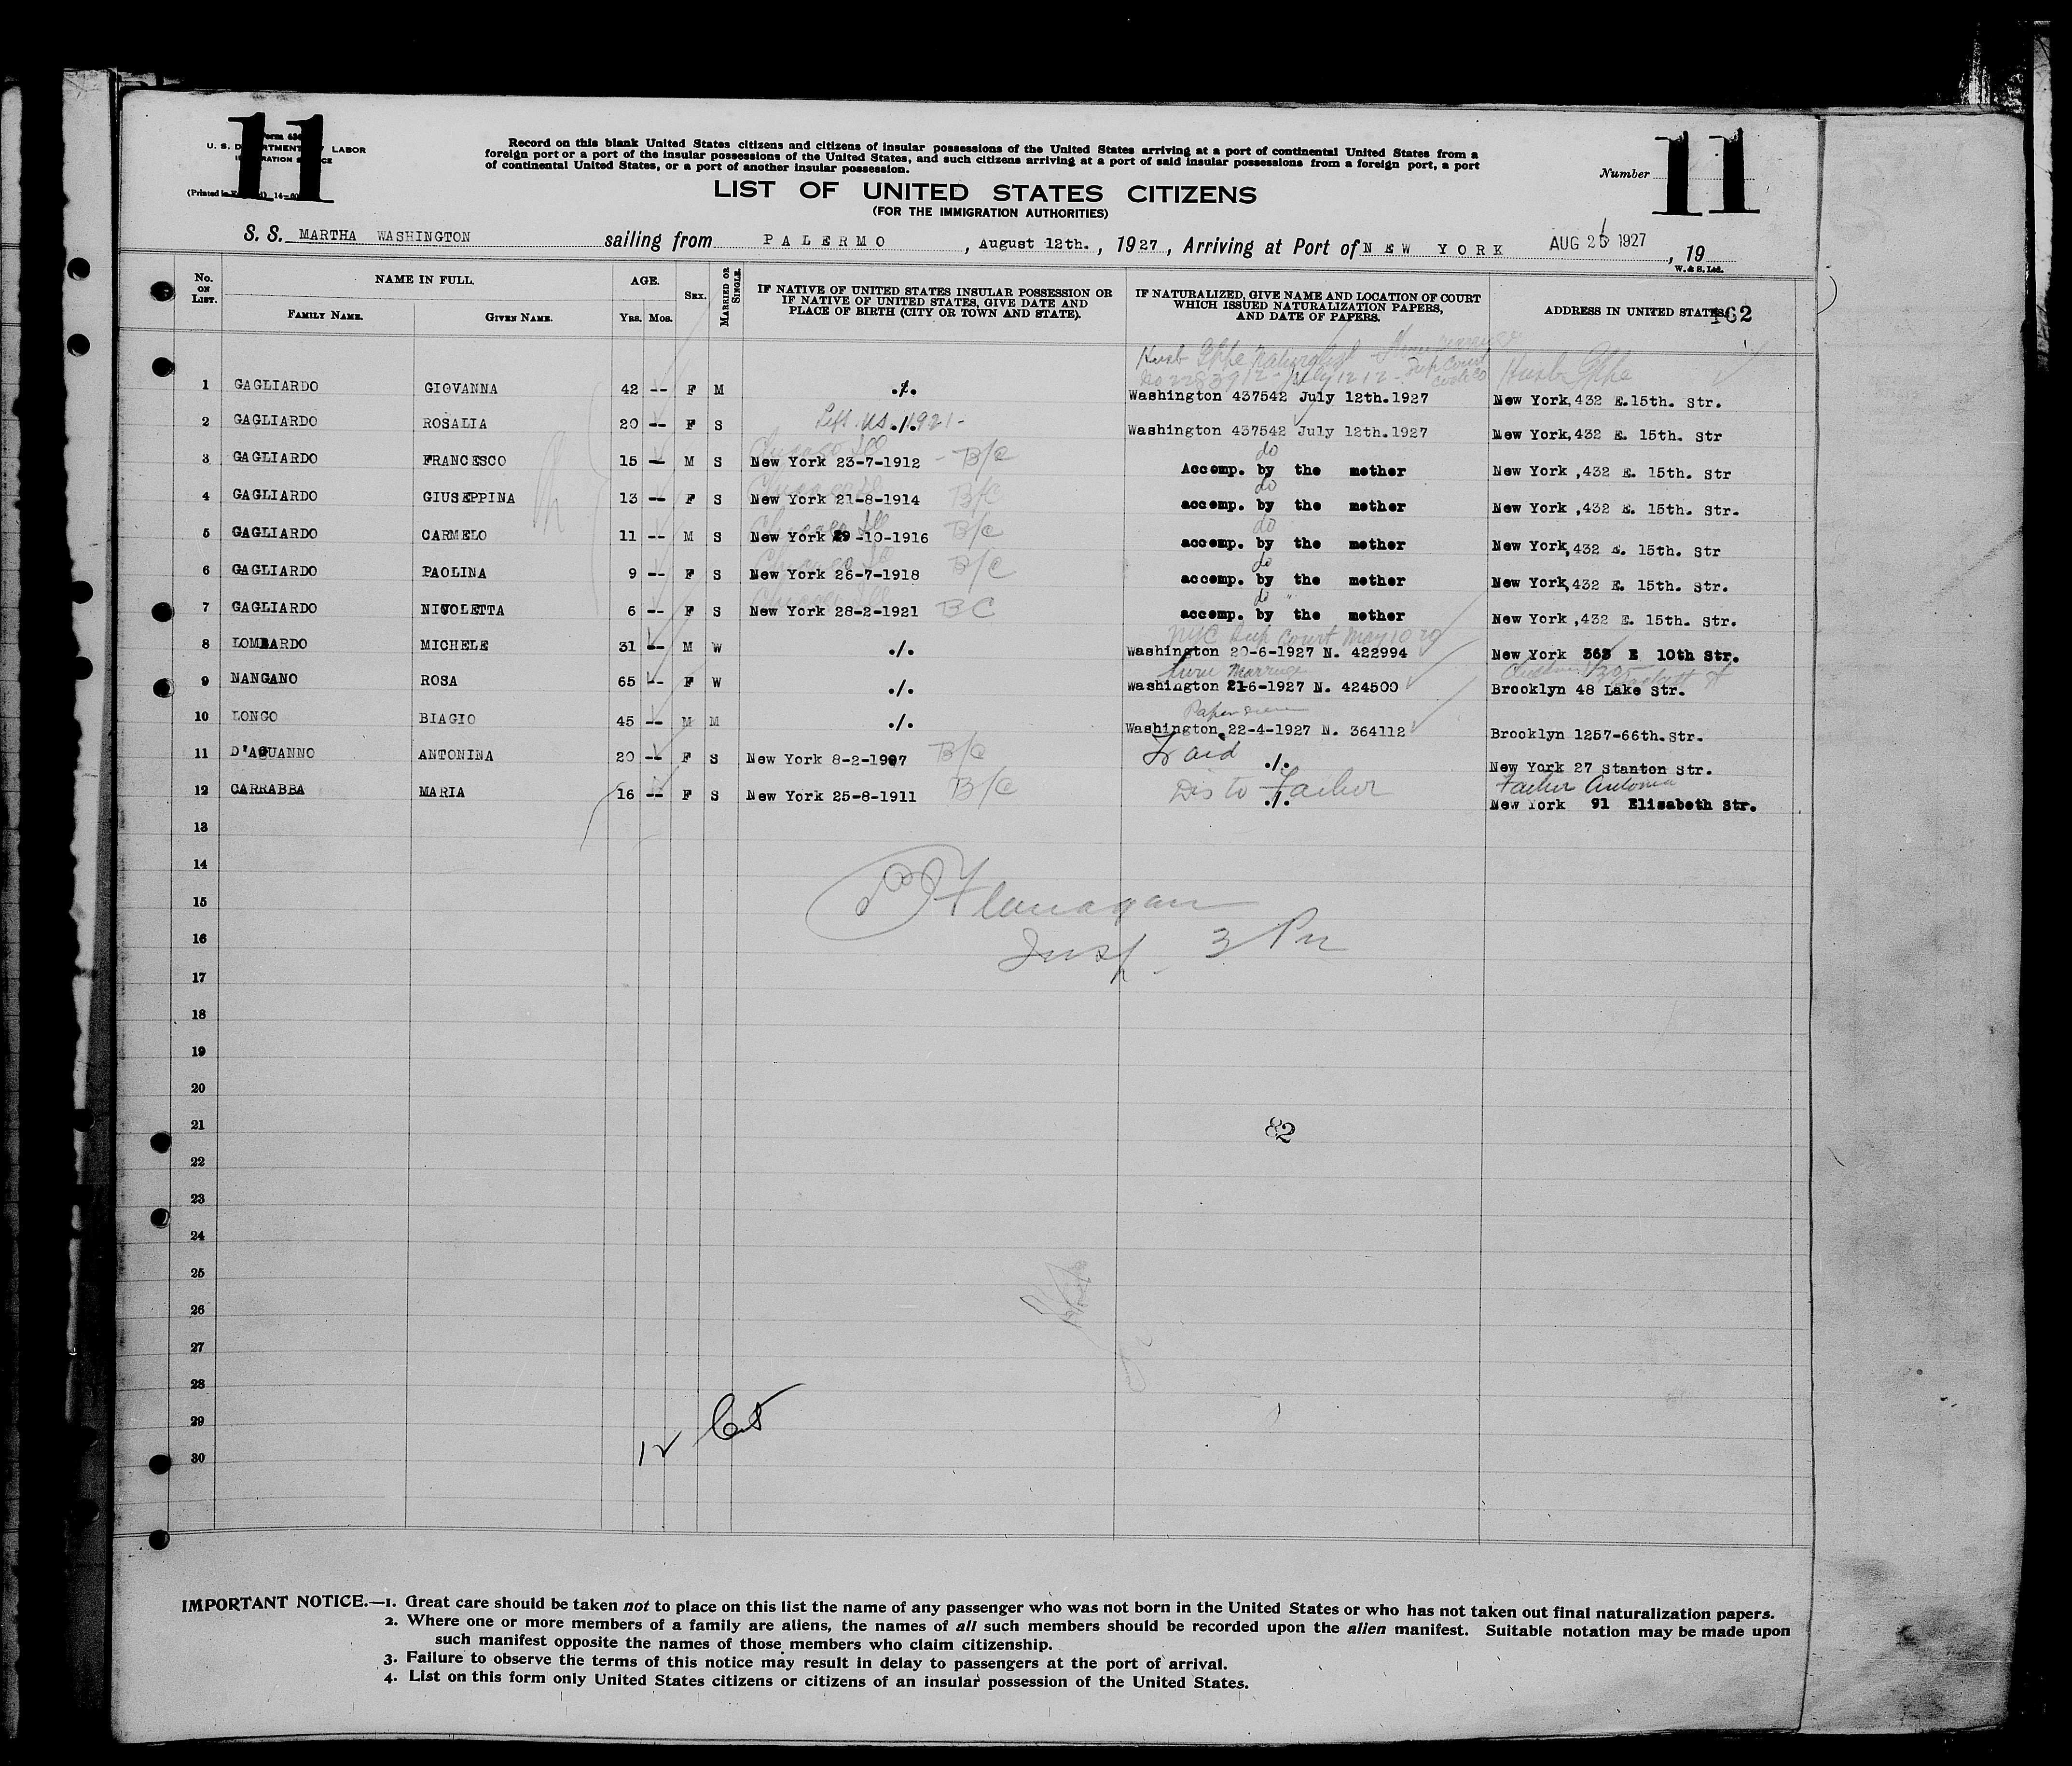 11
Form 630
U. S. DEPARTMENT OF LABOR
IMMIGRATION SERVICE
Record on this blank United States citizens and citizens of insular possessions of the United States arriving at a port of continental United States from a
foreign port or a port of the insular possessions of the United States, and such citizens arriving at a port of said insular possessions from a foreign port, a port
of continental United States, or a port of another insular possession.
Number 11
LIST OF UNITED STATES CITIZENS
(FOR THE IMMIGRATION AUTHORITIES)
S. S. MARTHA WASHINGTON sailing from PALERMO, August 12th., 1927, Arriving at Port of NEW YORK AUG 26 1927, 19
W. & S. Ltd.
No. ON LIST. NAME IN FULL. AGE. SEX. MARRIED OR SINGLE. IF NATIVE OF UNITED STATES INSULAR POSSESSION OR IF NATIVE OF UNITED STATES, GIVE DATE AND PLACE OF BIRTH (CITY OR TOWN AND STATE). IF NATURALIZED, GIVE NAME AND LOCATION OF COURT WHICH ISSUED NATURALIZATION PAPERS, AND DATE OF PAPERS. ADDRESS IN UNITED STATES. 162
FAMILY NAME. GIVEN NAME. YRS. MOS.
Husb Gppe Naturalized Sup Court
July 12 12 Husb Gppe
1 GAGLIARDO GIOVANNA 42 -- F M ./. Washington 437542 July 12th.1927 New York,432 E.15th. Str.
2 GAGLIARDO ROSALIA 20 -- F S Left US 1921- ./. Washington 437542 July 12th.1927 New York,432 E. 15th. Str
Chicago Ill do
3 GAGLIARDO FRANCESCO 15 -- M S New York 23-7-1912 - B/C Accomp. by the mother New York ,432 E. 15th. Str
Chicago Ill do
4 GAGLIARDO GIUSEPPINA 13 -- F S New York 21-8-1914 B/C accomp. by the mother New York ,432 E. 15th. Str.
Chicago Ill do
5 GAGLIARDO CARMELO 11 -- M S New York 29-10-1916 B/C accomp. by the mother New York,432 E. 15th. Str
Chicago Ill do
6 GAGLIARDO PAOLINA 9 -- F S New York 26-7-1918 B/C accomp. by the mother New York,432 E. 15th. Str.
Chicago Ill do
7 GAGLIARDO NICOLETTA 6 -- F S New York 28-2-1921 BC accomp. by the mother New York ,432 E. 15th. Str.
NYC Sup Court May 10 20
8 LOMBARDO MICHELE 31 -- M W ./. Washington 20-6-1927 N. 422994 New York 363 E 10th Str.
Marriage
9 NANGANO ROSA 65 -- F W ./. Washington 21-6-1927 N. 424500 Brooklyn 48 Lake Str.
Paper seen
10 LONGO BIAGIO 45 -- M M ./. Washington 22-4-1927 N. 364112 Brooklyn 1257-66th.Str.
11 D'AGUANNO ANTONINA 20 -- F S New York 8-2-1907 B/C ./. New York 27 Stanton Str.
Dis to Father Father Antonio
12 CARRABBA MARIA 16 -- F S New York 25-8-1911 B/C ./. New York 91 Elisabeth Str.
13
14
15
P Flanagan
16
Insp.
17
18
19
20
21
82
22
23
24
25
26
27
28
29
12
30
IMPORTANT NOTICE.—1. Great care should be taken not to place on this list the name of any passenger who was not born in the United States or who has not taken out final naturalization papers.
2. Where one or more members of a family are aliens, the names of all such members should be recorded upon the alien manifest. Suitable notation may be made upon
such manifest opposite the names of those members who claim citizenship.
3. Failure to observe the terms of this notice may result in delay to passengers at the port of arrival.
4. List on this form only United States citizens or citizens of an insular possession of the United States.